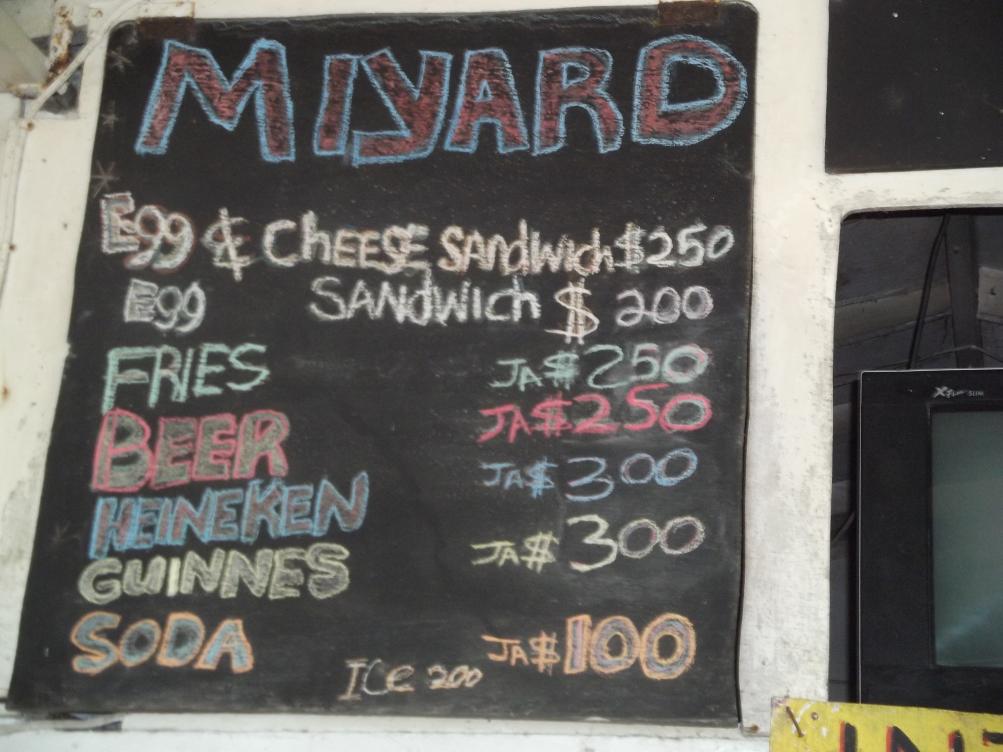 MIYARD
Egg & CHEESE SANdwich $250
Egg SANdwich $ 200
FRIES JA$250
BEER JA$250
HEINEKEN JA$300
GUINNES JA$300
SODA JA$100
ICe 200